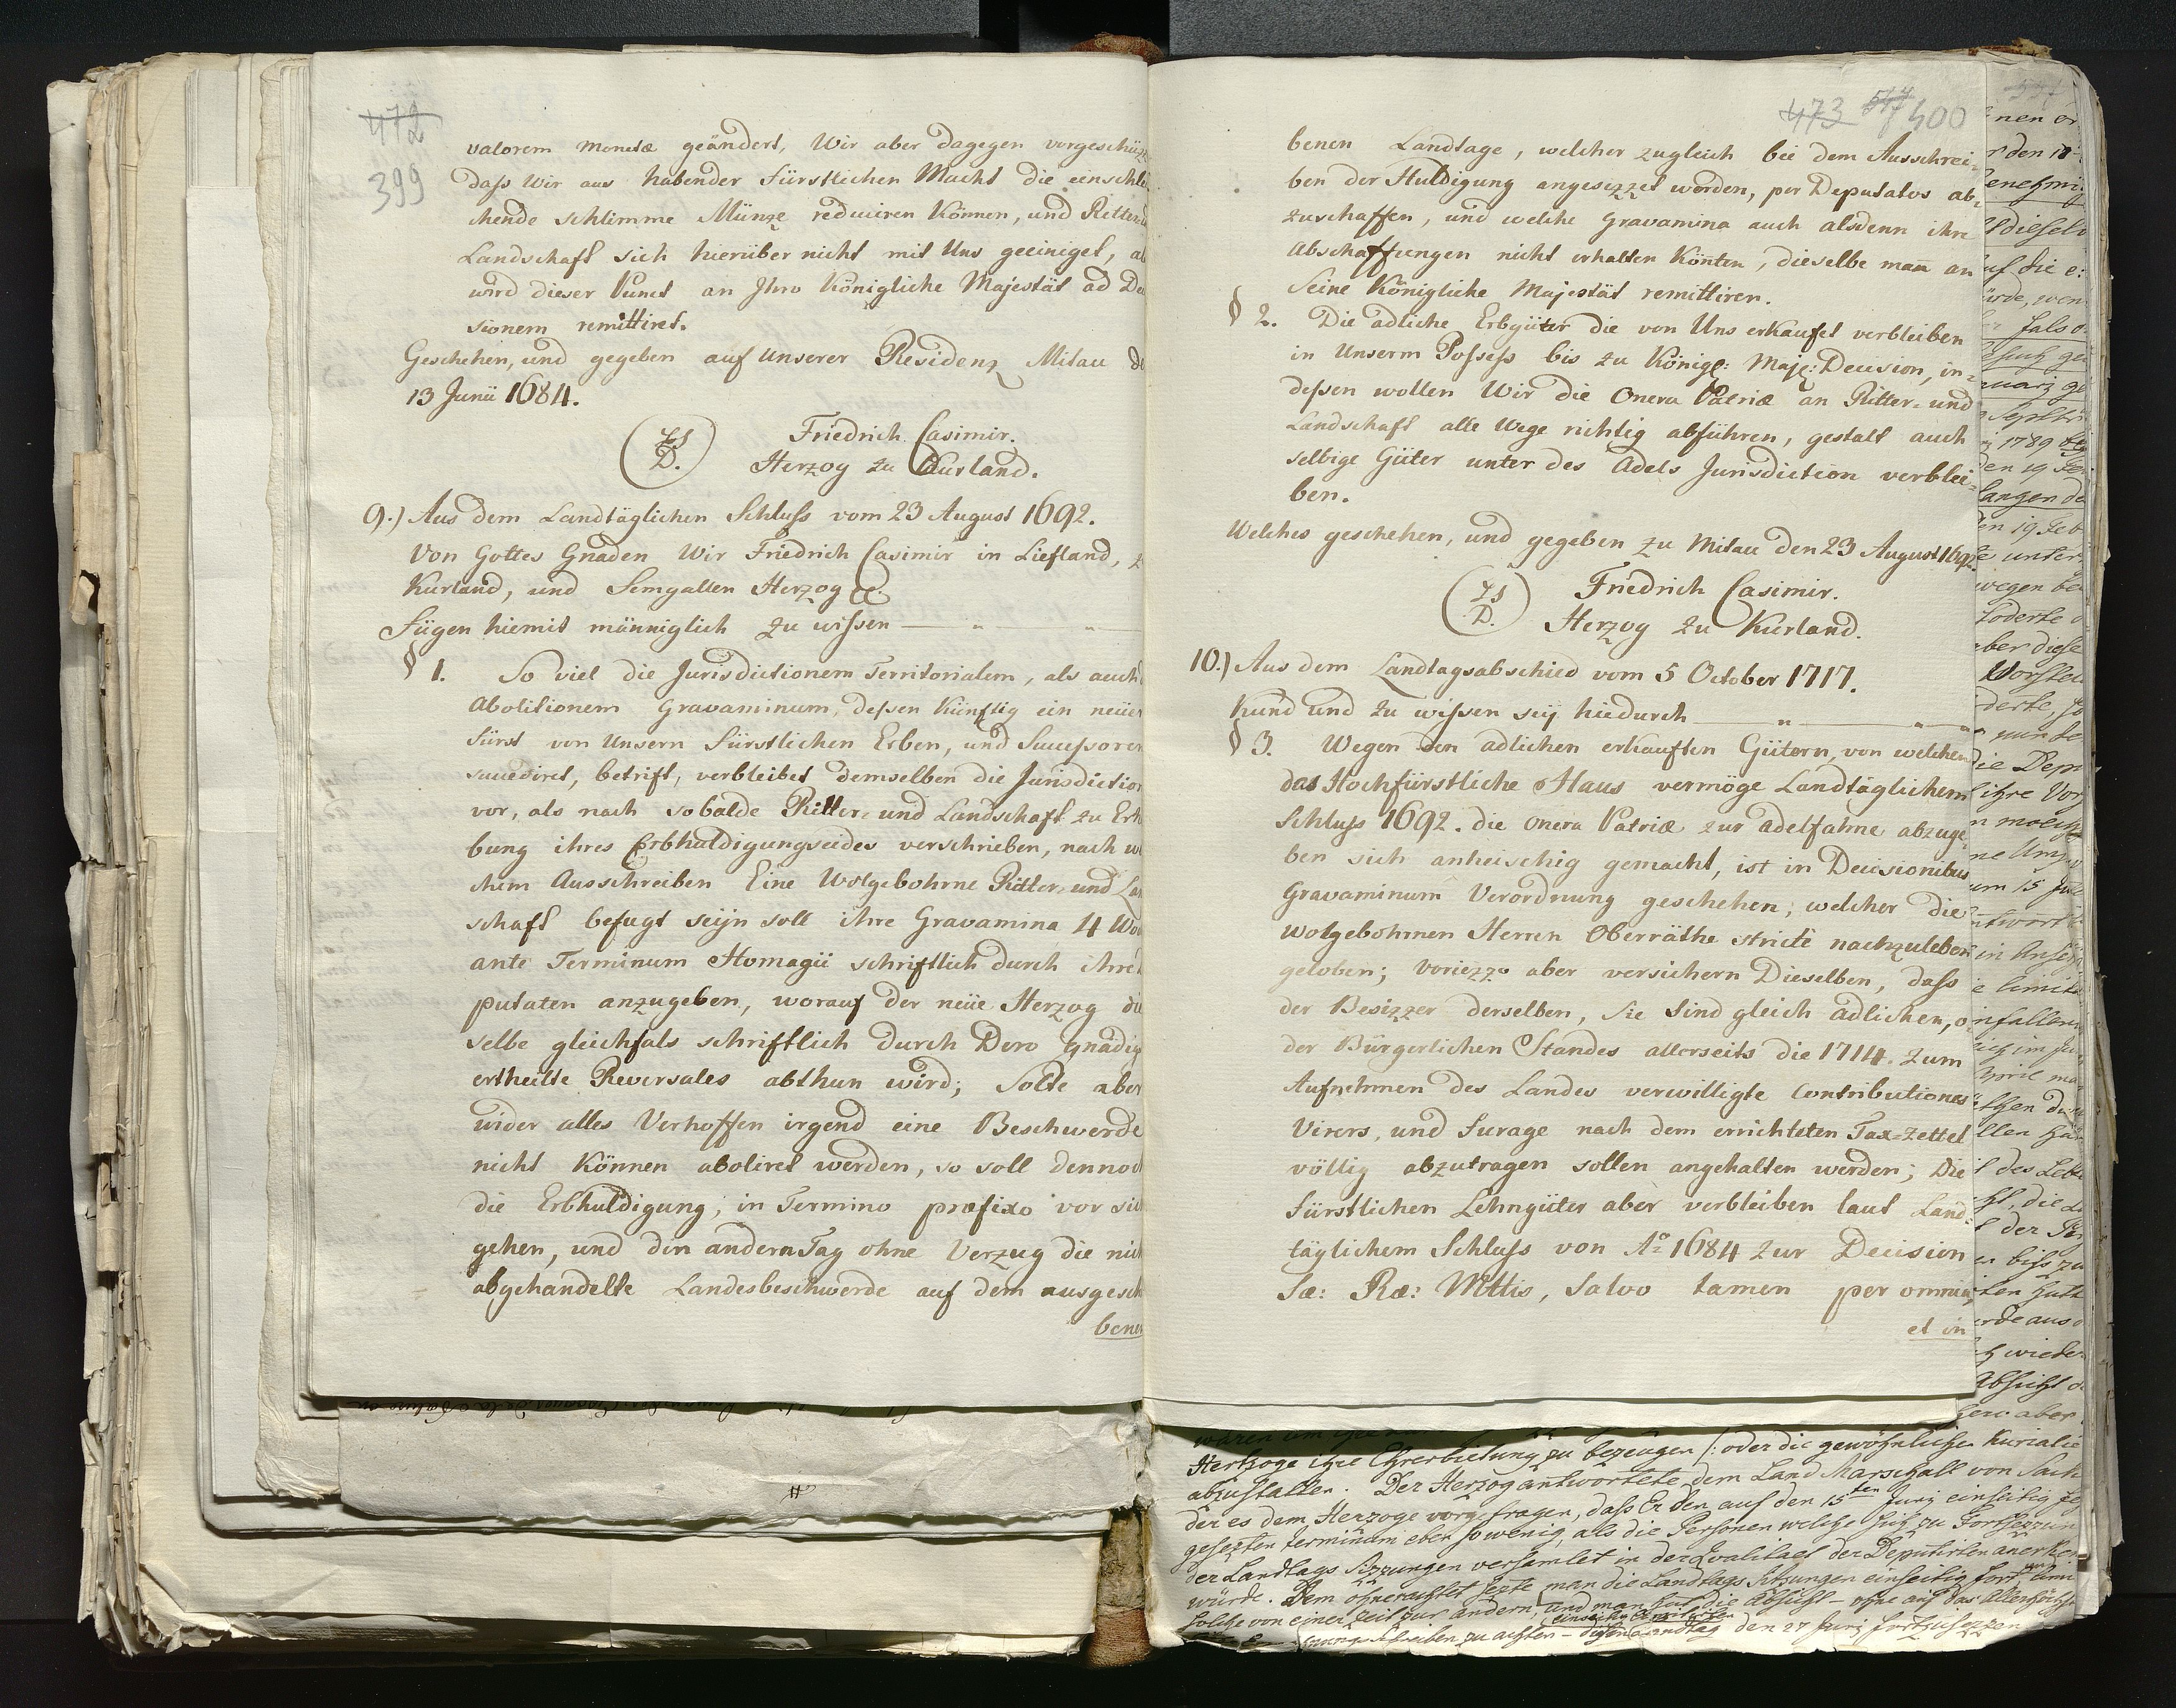 472
399
valorem monetæ geändert, Wir aber dagegen vorgeschüz
daß Wir aus habender Fürstlichen Macht die einschlei
chende schlimme Münze reduciren können, und Ritter
Landschaft sich hierüber nicht mit Uns geeiniget, al
wird dieser Punct an Ihro Königliche Majestät ad De
sionem remittiret.
Geschehen, und gegeben auf Unserer Residenz Mitau d
13 Junii 1684.
Friedrich Casimir.
Herzog zu Curland.
9.) Aus dem Landtäglichen Schluß vom 23 August 1692.
Von Gottes Gnaden Wir Friedrich Casimir in Liefland, z
Kurland, und Semgallen Herzog
Fügen hiemit männiglich zu wißen — " "
§ 1. So viel die Jurisdictionem Territorialem, als auch
Abolitionem Gravaminum, deßen künftig ein neüer
Fürst von Unsern Fürstlichen Erben, und Sucessoren
succediret, betrift, verbleibet demselben die Jurisdiction
vor, als nach sobalde Ritter- und Landschaft zu Erh
bung ihres Erbhuldigungseides verschrieben, nach we
chem Ausschreiben Eine Wolgebohrne Ritter- und Lan
schaft befugt seÿn soll ihre Gravamina 4 Woc
ante Terminum Homagii schriftlich durch ihre
putaten anzugeben, worauf der neüe Herzog die
selbe gleichfals schriftlich durch Dero gnädig
ertheilte Reversales abthun wird; Solte aber
wider alles Verhoffen irgend eine Beschwerde
nicht können aboliret werden, so soll dennoc
die Erbhuldigung, in Termino præfixo vor sich
gehen, und den andern Tag ohne Verzug die nich
abgehandelte Landesbeschwerde auf dem ausgesch
benen
473 547 400
benen Landtage, welcher zugleich bei dem Ausschrei-
ben der Huldigung angesezzet worden, per Deputatos ab-
zuschaffen, und welche Gravamina auch alsdenn ihre
Abschaffungen nicht erhalten könten, dieselbe man an
Seine Königliche Majestät remittiren.
§ 2. Die adliche Erbgüter die von Uns erkaufet verbleiben
in Unserm Possess bis zu Königl: Maje: Decision, in-
deßen wollen Wir die Onera Patriæ an Ritter- und
Landschaft alle Wege richtig abführen, gestalt auch
selbige Güter unter des Adels Jurisdiction verblei-
ben.
Welches geschehen, und gegeben zu Mitau den 23 August 1692.
Friedrich Casimir.
Herzog zu Kurland.
10.) Aus dem Landtagsabschied vom 5 October 1717.
Kund und zu wißen seÿ hiedurch — " — " "
§ 3. Wegen den adlichen erkauften Gütern, von welchen
das Hochfürstliche Haus vermöge Landtäglichem
Schluß 1692. die Onera Patriæ zur adelfahne abzuge-
ben sich anheischig gemacht, ist in Decisionibus
Gravaminum Verordnung geschehen; welcher die
Wolgebohrnen Herren Oberräthe stricte nachzuleben
geloben; voriezzo aber versichern Dieselben, daß
der Besizzer derselben, Sie sind gleich adlichen, o-
der Bürgerlichen Standes allerseits die 1714. zum
Aufnehmen des Landes verwilligte Contributiones
Vivers, und Furage nach dem errichteten Tax-Zettel
völlig abzutragen sollen angehalten werden; Die
Fürstlichen Lehngüter aber verbleiben laut Land-
täglichem Schluß von A° 1684 zur Decision
Sæ: Ræ: Mttis, Salvo tamen per omnia,
et in
Hertzoge ihre Ehrerbietung zu bezeugen /: oder die gewöhnliche Kurialie
abzustatten. Der Herzog antwortete dem Land Marschall von Sack
der es dem Herzoge vorgetragen, daß Er den auf den 15ten Junÿ einseitig
gesezten Terminum eben so wenig, als die Personen welche sich zu Fortsezzun
der Landtags Sizzungen versamlet in der Qualitaet der Deputirten anerken
würde. Dem ohnerachtet sezte man die Landtags Sizzungen einseitig fort
solche von einer Zeit zur andern, und man hat die Absicht – ohne auf das Allerhöchst
schreiben zu achten – diesen Landtag den 27 Junÿ fortzusezzen